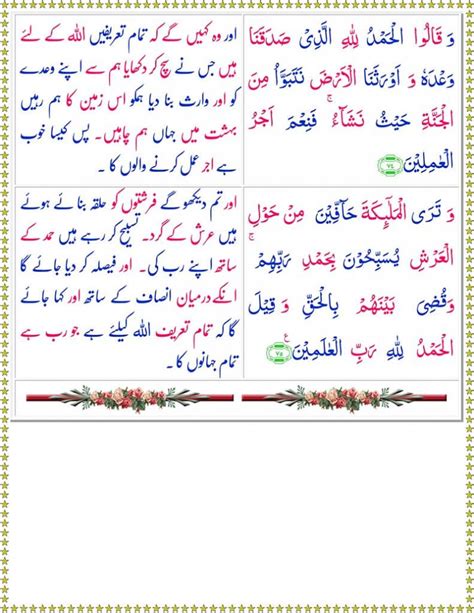 وَ قَالُوا الْحَمْدُ لِلّٰهِ الَّذِیْ صَدَقَنَا
وَعْدَهٗ وَ اَوْرَثَنَا الْاَرْضَ نَتَبَوَّاُ مِنَ
الْجَنَّةِ حَیْثُ نَشَآءُ ۚ فَنِعْمَ اَجْرُ
الْعٰمِلِیْنَ ﴿۷۴﴾
اور وہ کہیں گے کہ تمام تعریفیں اللہ کے لئے
ہیں جس نے سچ کر دکھایا ہم سے اپنے وعدے
کو اور وارث بنا دیا ہمکو اس زمین کا ہم رہیں
بہشت میں جہاں ہم چاہیں۔ پس کیسا خوب
ہے اجر عمل کرنے والوں کا ۔
وَ تَرَی الْمَلٰٓىِٕكَةَ حَآفِّیْنَ مِنْ حَوْلِ
الْعَرْشِ یُسَبِّحُوْنَ بِحَمْدِ رَبِّهِمْ ۚ
وَ قُضِیَ بَیْنَهُمْ بِالْحَقِّ وَ قِیْلَ
الْحَمْدُ لِلّٰهِ رَبِّ الْعٰلَمِیْنَ ﴿۷۵﴾
اور تم دیکھو گے فرشتوں کو حلقہ بنائے ہوئے
ہیں عرش کے گرد۔ تسبیح کر رہے ہیں حمد کے
ساتھ اپنے رب کی۔ اور فیصلہ کر دیا جائے گا
انکے درمیان انصاف کے ساتھ اور کہا جائے
گا کہ تمام تعریف اللہ کیلئے ہے جو رب ہے
تمام جہانوں کا ۔